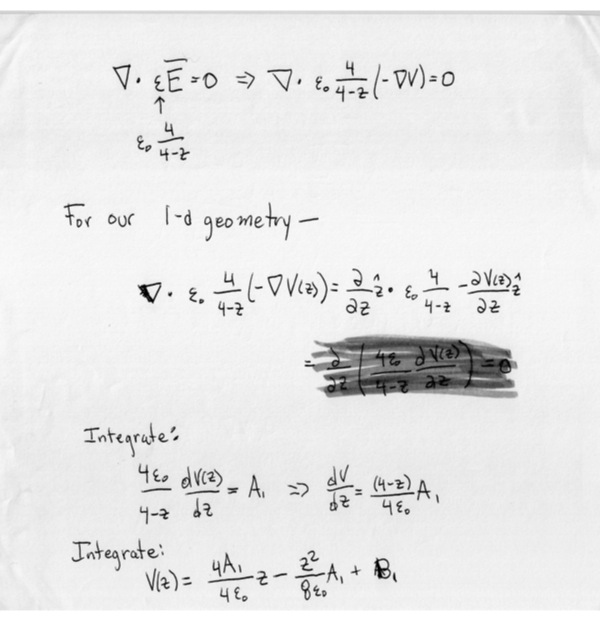 ∇ · εE̅ = 0 ⇒ ∇ · ε₀ 4/(4-z) (-∇V) = 0
↑
ε₀ 4/(4-z)
For our 1-d geometry —
∇ · ε₀ 4/(4-z) (-∇V(z)) = ∂/∂z ẑ · ε₀ 4/(4-z) -∂V(z)/∂z ẑ
= ∂/∂z ( 4ε₀/(4-z) dV(z)/∂z ) = 0
Integrate:
4ε₀/(4-z) dV(z)/dz = A₁ ⇒ dV/dz = (4-z)/4ε₀ A₁
Integrate:
V(z) = 4A₁/4ε₀ z - z²/8ε₀ A₁ + B₁